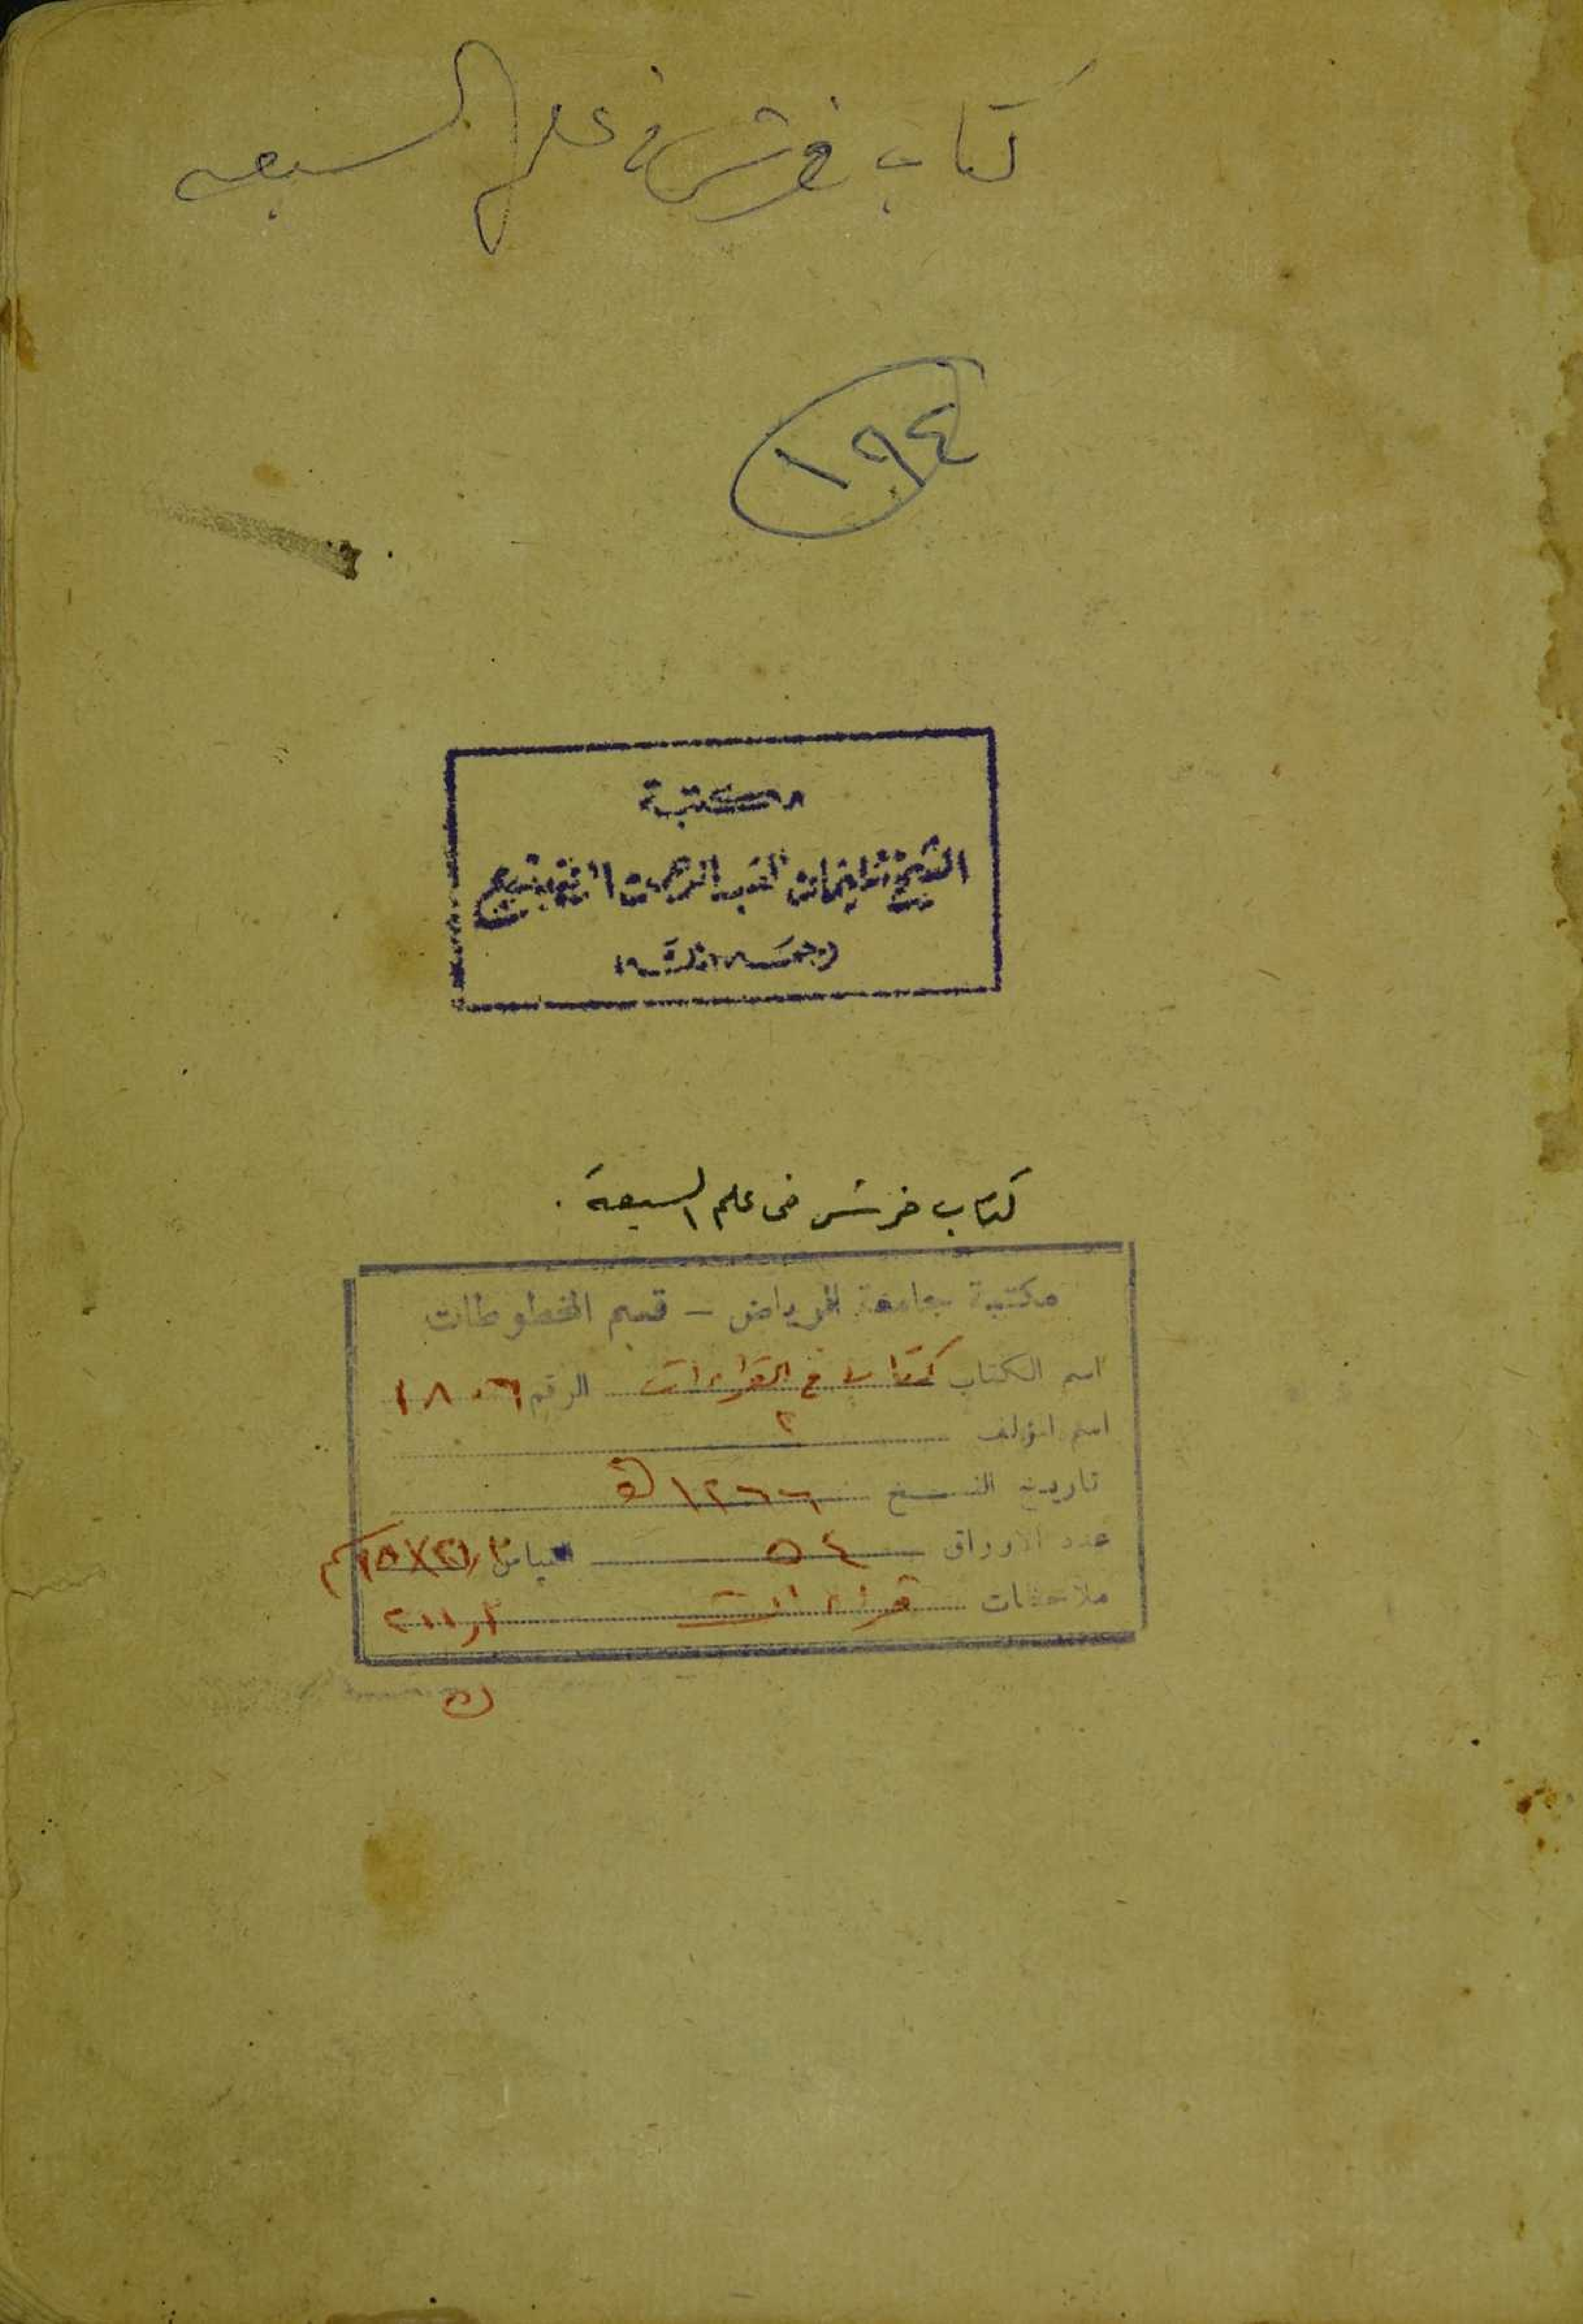 كتاب فرش في علم السبعه
١٩٤
مكتبة
الشيخ عبد الرحمن
رحمه الله
كتاب فرش فى علم السبعة .
مكتبة جامعة الرياض - قسم المخطوطات
اسم الكتاب كتاب في القراءات الرقم ١٨٠٦
اسم المؤلف ؟
تاريخ النسخ ١٢٦٦ هـ
عدد الأوراق ٥٤ القياس
ملاحظات قراءات